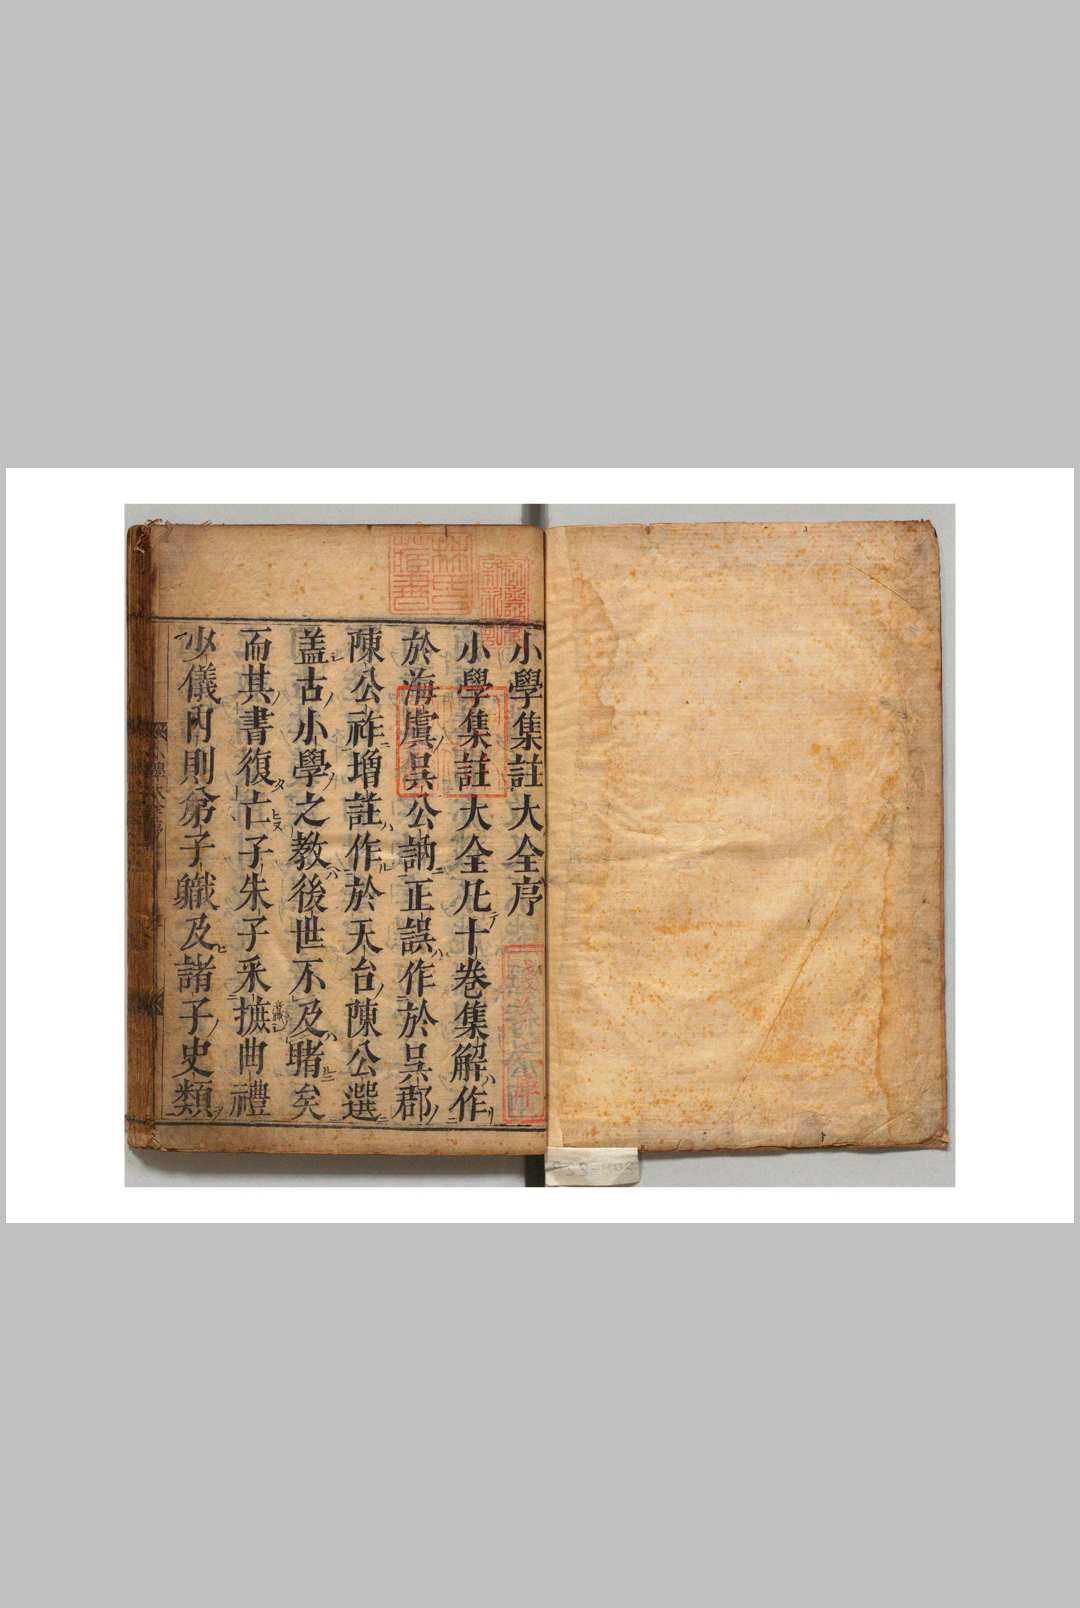 小學集註大全序
小學集註大全凡十巻集解作
於海虞吳公訥正誤作於吳郡
陳公祚增註作於天台陳公選
盖古小學之教後世不及睹矣
而其書復亡子朱子采摭曲禮
少儀內則弟子職及諸子史類
林氏藏書